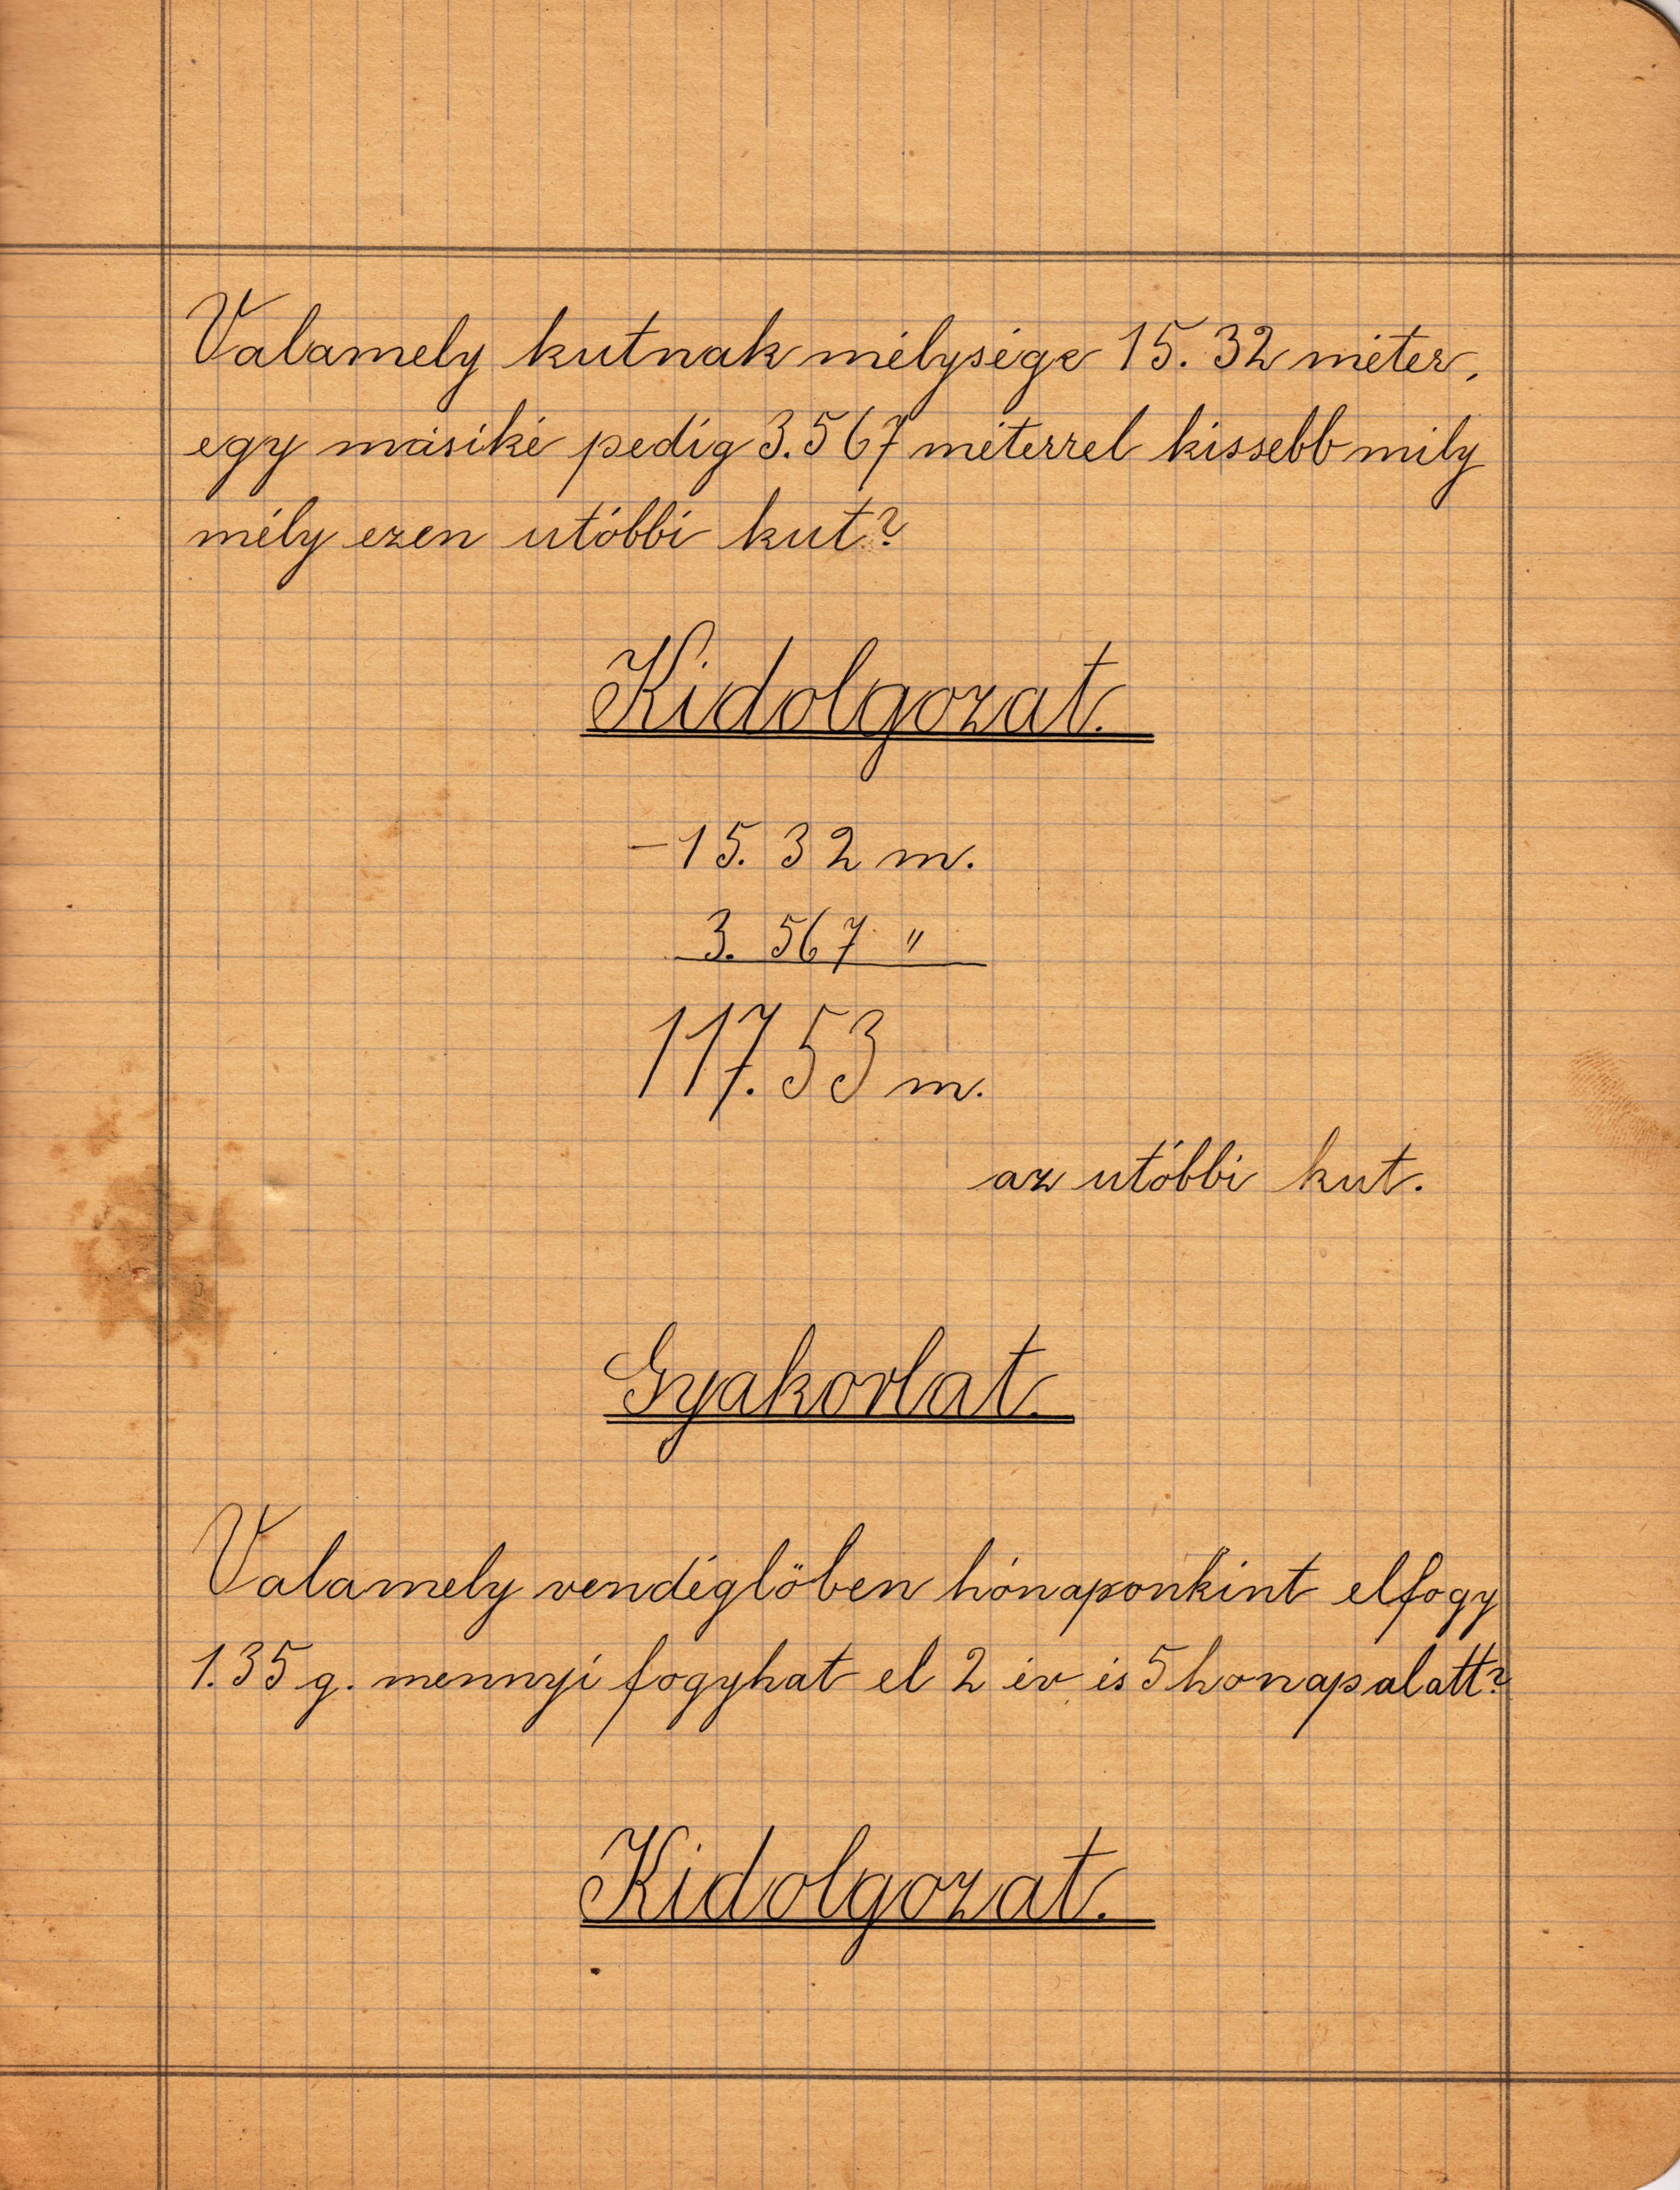 Valamely kutnak mélysége 15.32 méter,
egy másiké pedig 3.567 méterrel kissebb mily
mély ezen utóbbi kut?
Kidolgozat.
-15.32 m.
3.567 "
117.53 m.
az utóbbi kut.
Gyakorlat.
Valamely vendéglőben hónaponkint elfogy
1.35 g. mennyi fogyhat el 2 év és 5 honap alatt?
Kidolgozat.